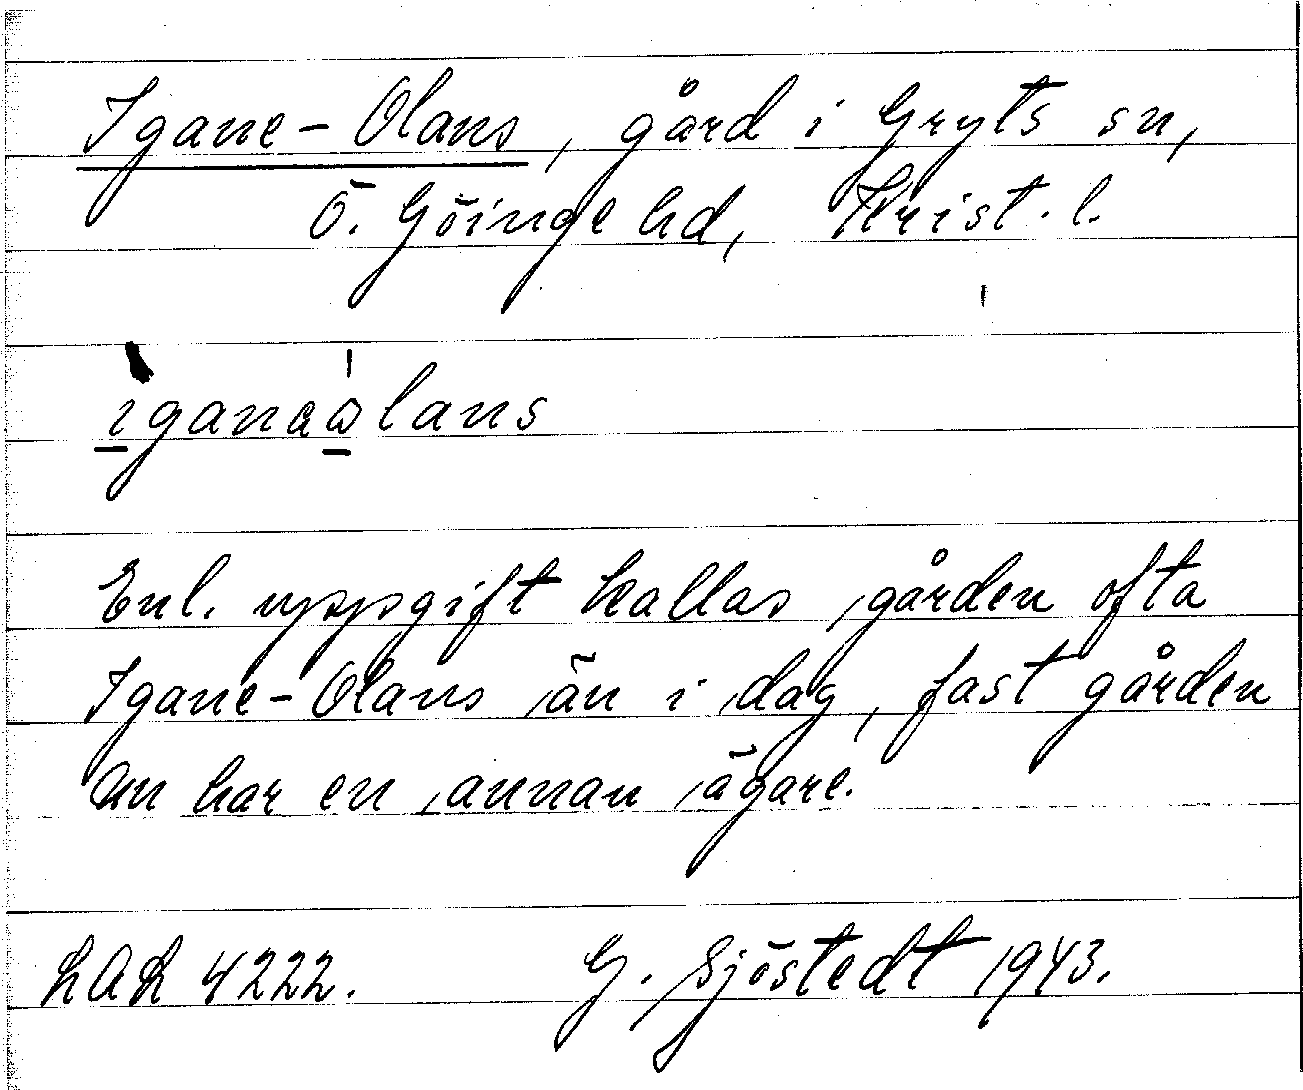 Igane-Olans, gård i Gryts sn,
Ö. Göinge hd, Krist. l.
iganaωlans
Enl. uppgift kallas gården ofta
Igane-Olans än i dag, fast gården
nu har en annan ägare.
LAL 4222. G. Sjöstedt 1943.